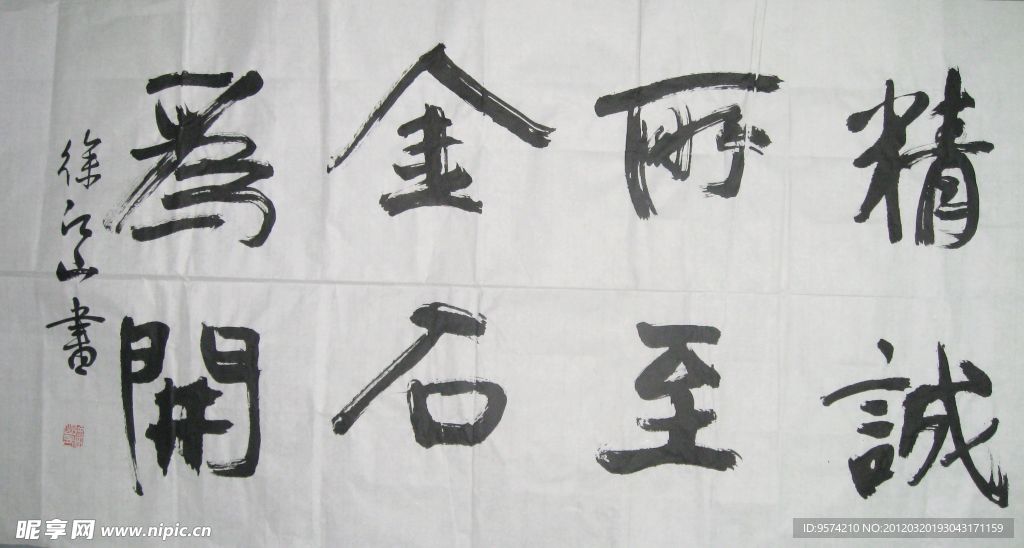 精誠
所至
金石
為開
徐江山書
昵享网 www.nipic.cn
ID:9574210 NO:20120320193043171159